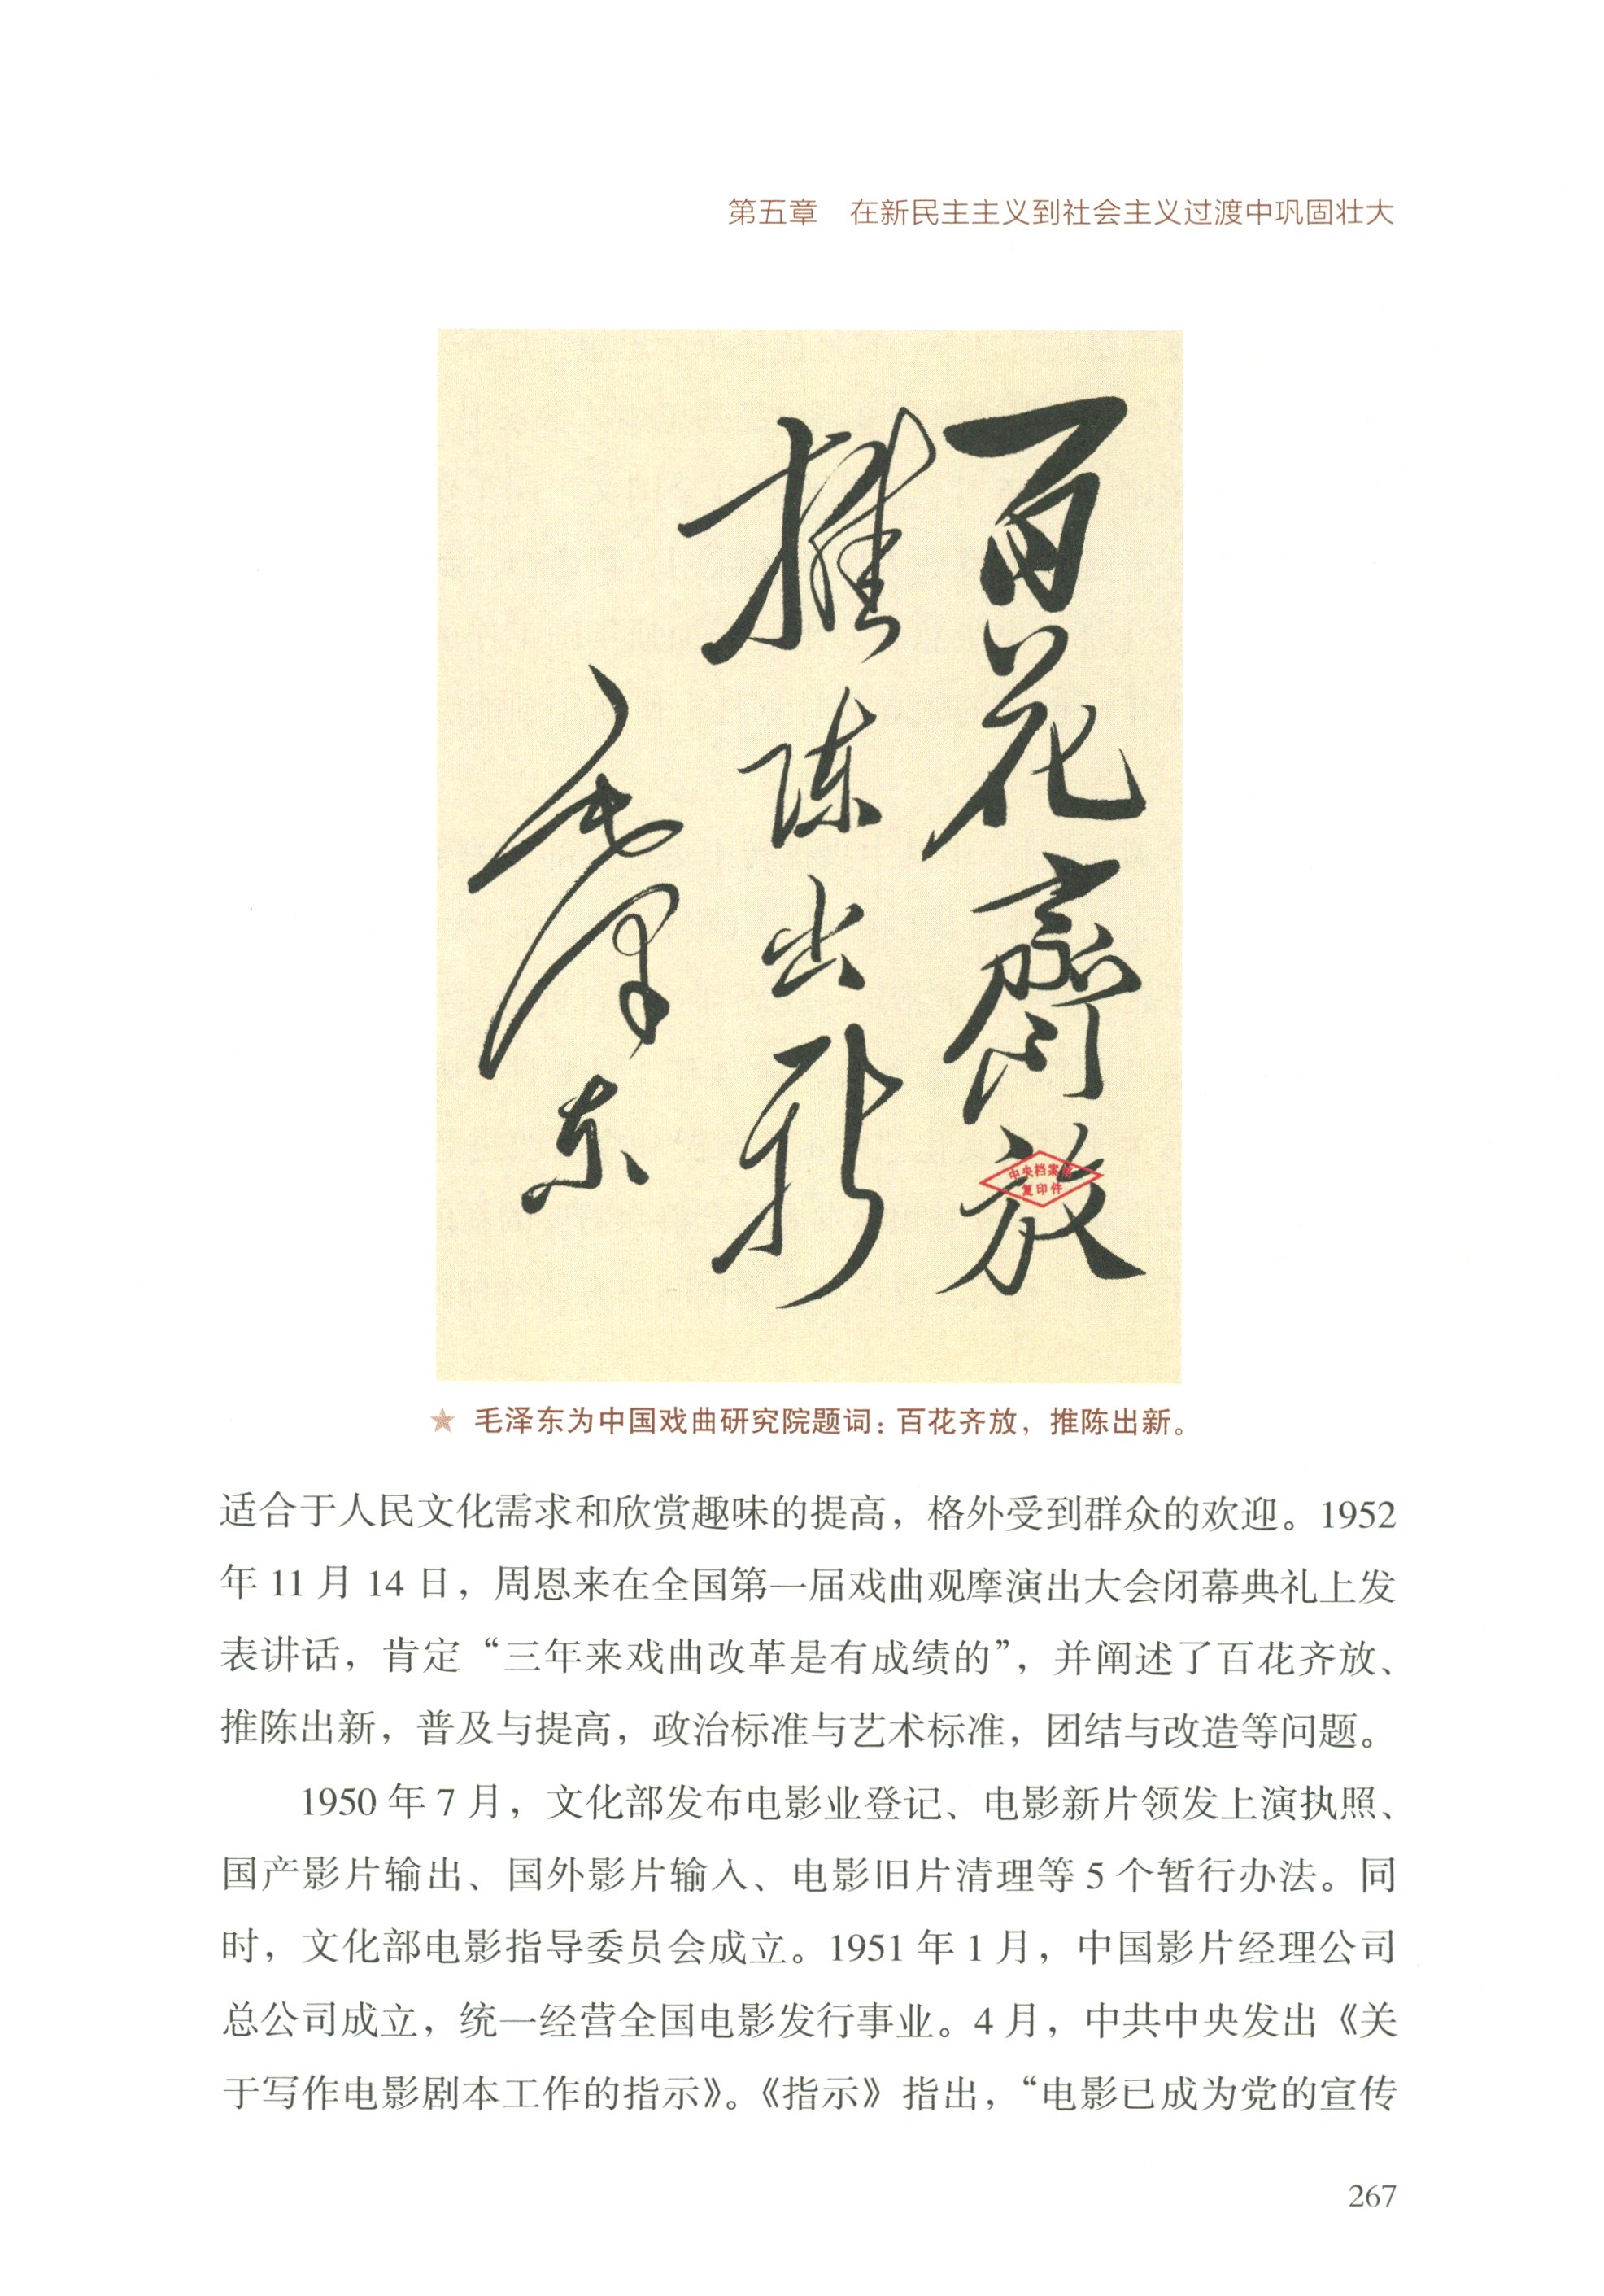 第五章　在新民主主义到社会主义过渡中巩固壮大
百花齊放
推陈出新
毛泽东
中央档案馆
复印件
★ 毛泽东为中国戏曲研究院题词：百花齐放，推陈出新。
适合于人民文化需求和欣赏趣味的提高，格外受到群众的欢迎。1952
年 11 月 14 日，周恩来在全国第一届戏曲观摩演出大会闭幕典礼上发
表讲话，肯定“三年来戏曲改革是有成绩的”，并阐述了百花齐放、
推陈出新，普及与提高，政治标准与艺术标准，团结与改造等问题。
1950 年 7 月，文化部发布电影业登记、电影新片领发上演执照、
国产影片输出、国外影片输入、电影旧片清理等 5 个暂行办法。同
时，文化部电影指导委员会成立。1951 年 1 月，中国影片经理公司
总公司成立，统一经营全国电影发行事业。4 月，中共中央发出《关
于写作电影剧本工作的指示》。《指示》指出，“电影已成为党的宣传
267